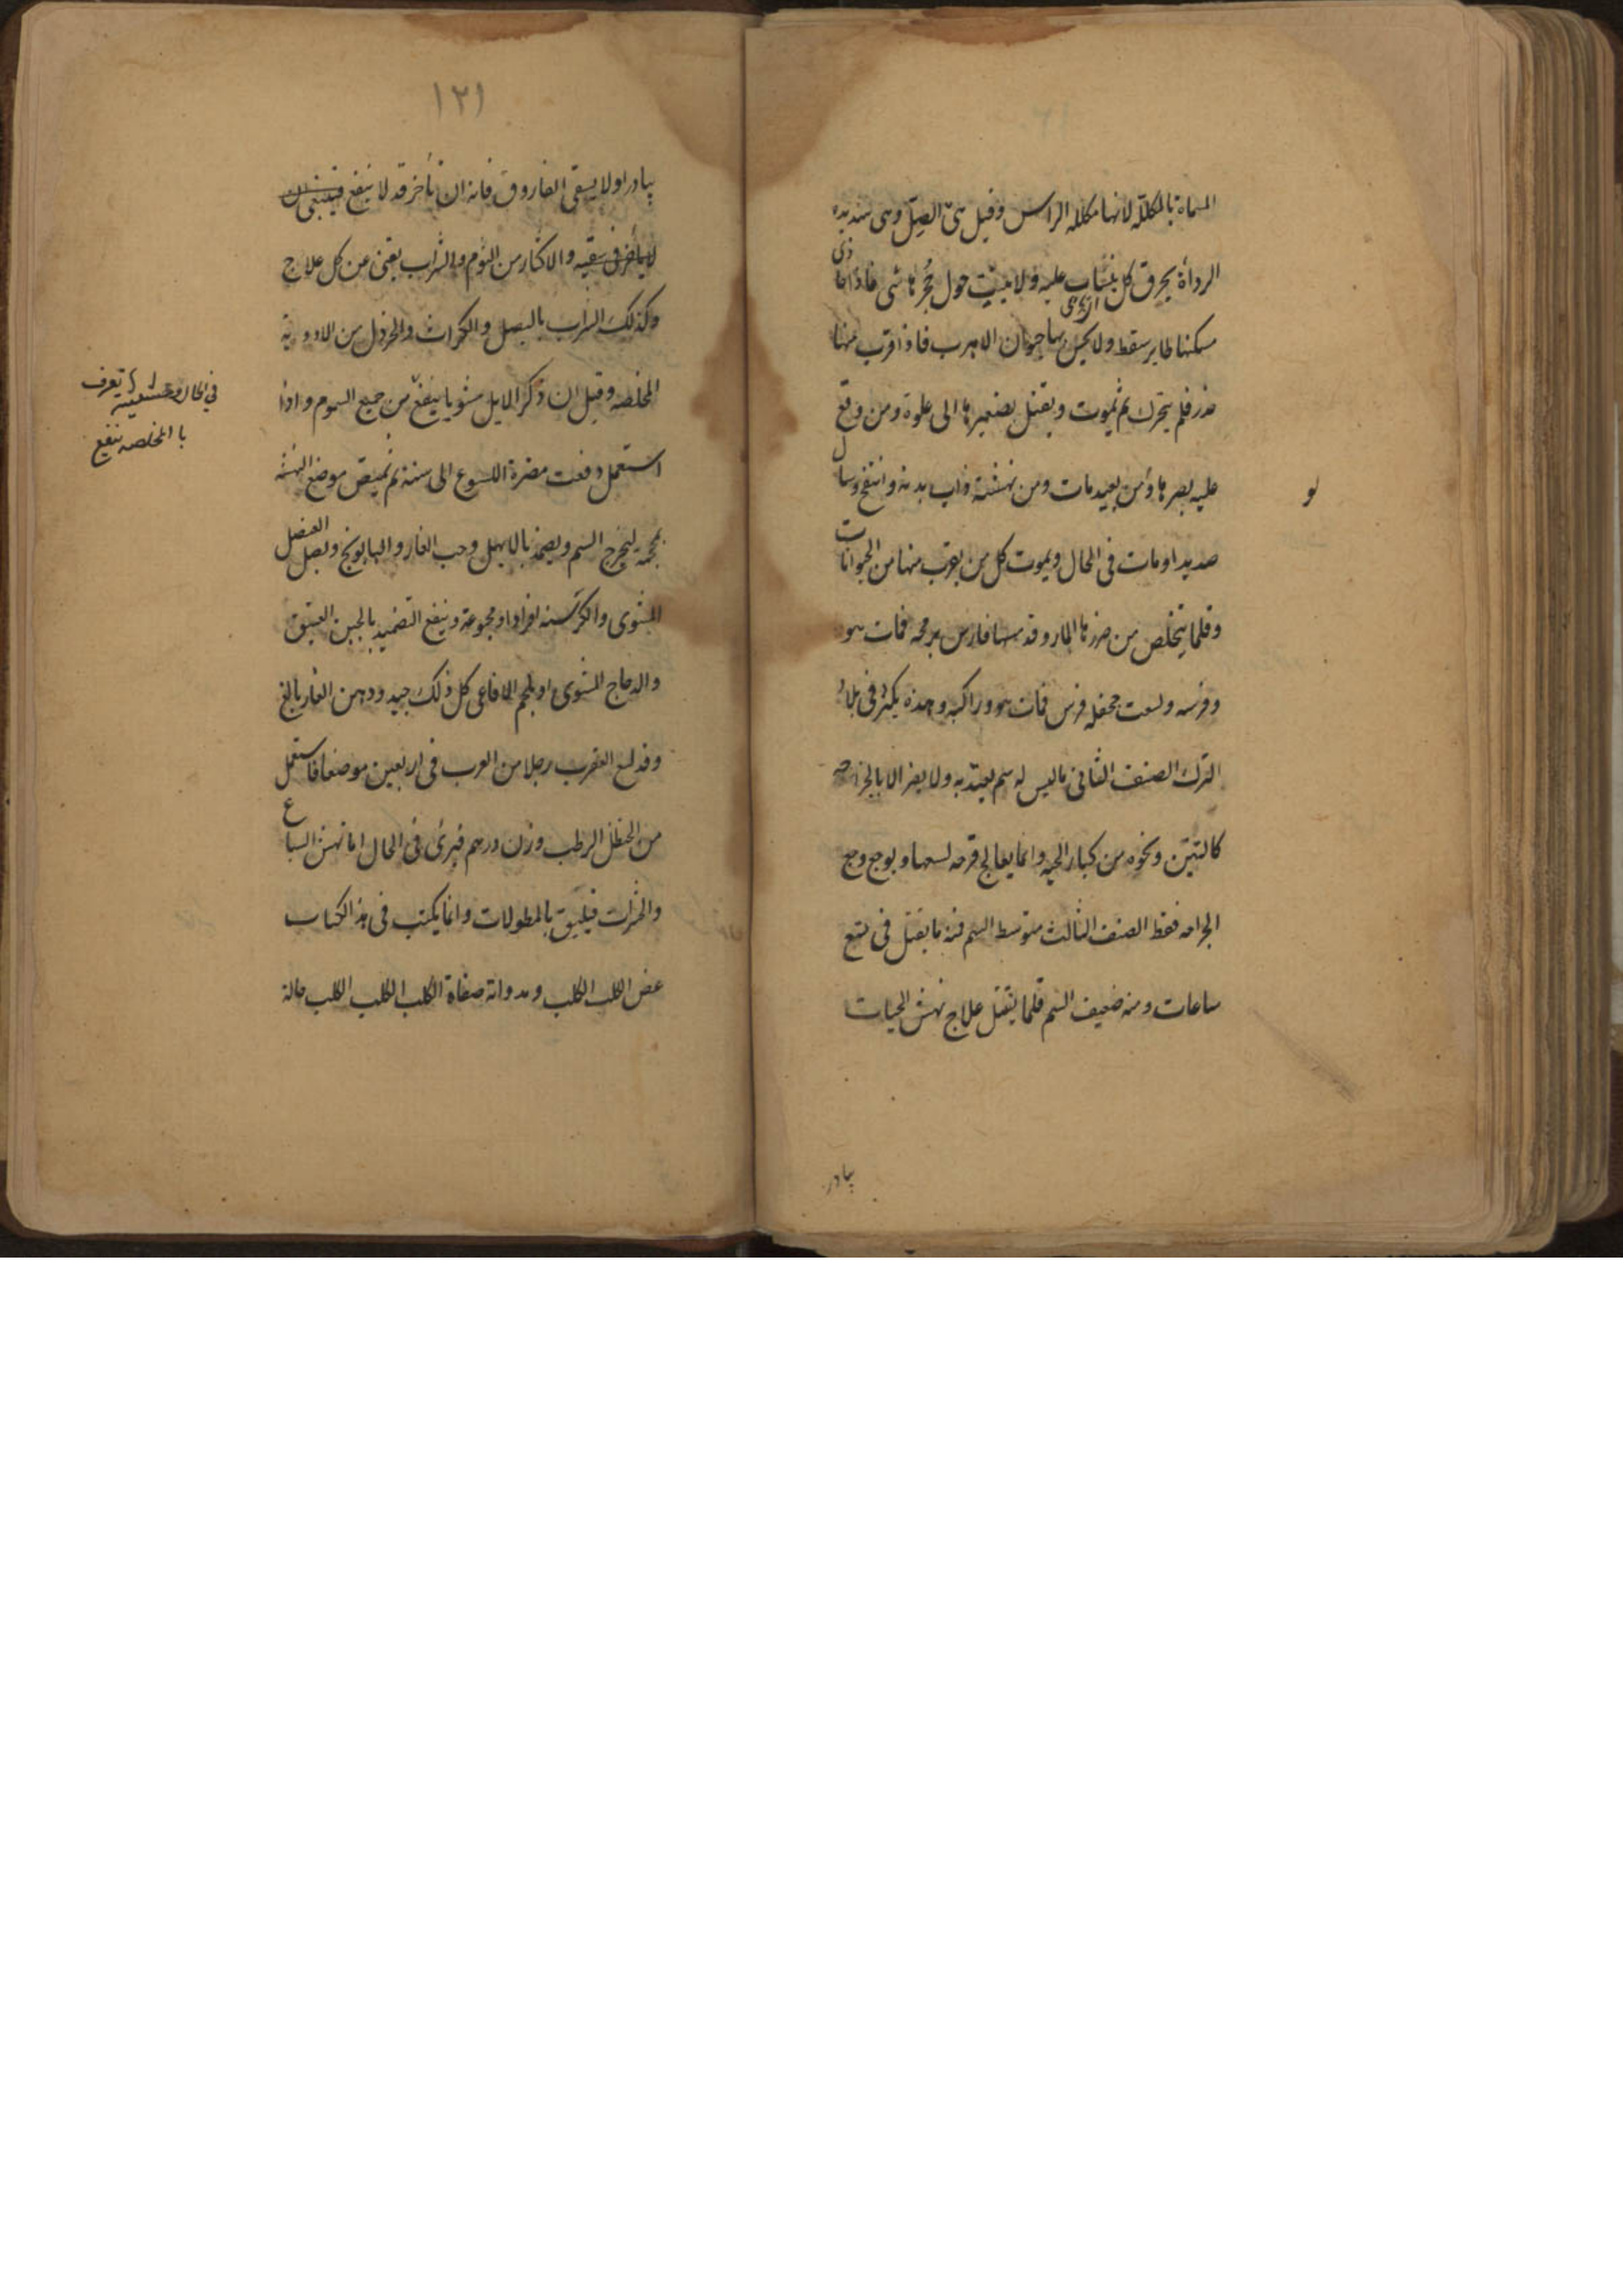 المسماة بالمكللة لانها مكللة الراس وقيل هى الصل وهى شديدة
الرداأة يحرق كل ينساب عليه ولا ينبت حول جحرها شى فاذا حاذى
مسكنها طاير سقط ولا يحس بها حيوان الا هرب فاذا قرب منها
خدر فلم يتحرك ثم يموت ويقتل بصفيرها الى غلوة ومن وقع
عليه بصرها ومن بعيد مات ومن نهشته ذاب بدنه وانتفخ وسال
لو
صديدا ومات فى الحال ويموت كل من يقرب منها من الحيوانات
وقلما يتخلص من ضررها المار وقد مسها فارس برمحه فمات هو
وفرسه ولسعت جحفلة فرس فمات هو وراكبه وهذه يكثر فى بلاد
الترك الصنف الثانى ما ليس له سم يعتد به ولا يضر الا بالجراحه
كالتنين ونحوه من كبار الحيه وانما يعالج قرحه لسعها وبوجع وجع
الجراحه فقط الصنف الثالث متوسط السم فمنه ما يقتل فى سبع
ساعات ومنه ضعيف السم قلما يقتل علاج نهش الحيات
يبادر
١٢١
يبادر اولا يسقى الفاروق فانه ان تأخر قد لا ينفع فينبغى ان
لا يتأخر فى سقيه والاكثار من الثوم والشراب يغنى عن كل علاج
وكذلك الشراب بالبصل والكراث والخردل من الادوية
المخلصه وقيل ان ذكر الايل مشويا ينفع من جميع السموم واذا
فى الحال وحشيشة تعرف
با المخلصه ينفع
استعمل دفعت مضرة اللسوع الى سنة ثم يمص موضع النهشه
بمحجمه ليخرج السم ويضمد بالابهل وحب الغار والبابونج وبصل العنصل
المشوى والكرسنه افرادا ومجموعة وينفع التضميد بالجبن العتيق
والدجاج المشوى او بلحم الافاعى كل ذلك جيد ودهن الغار بالغ
وقد لسع العقرب رجلا من العرب فى اربعين موضعا فاستعمل
من الحنظل الرطب وزن درهم فبرئ فى الحال اما نهش السباع
والحشرات فيليق بالمطولات وانما يكتب فى هذا الكتاب
عض الكلب الكلب ومداواته صفاة الكلب الكلب الكلب حالة